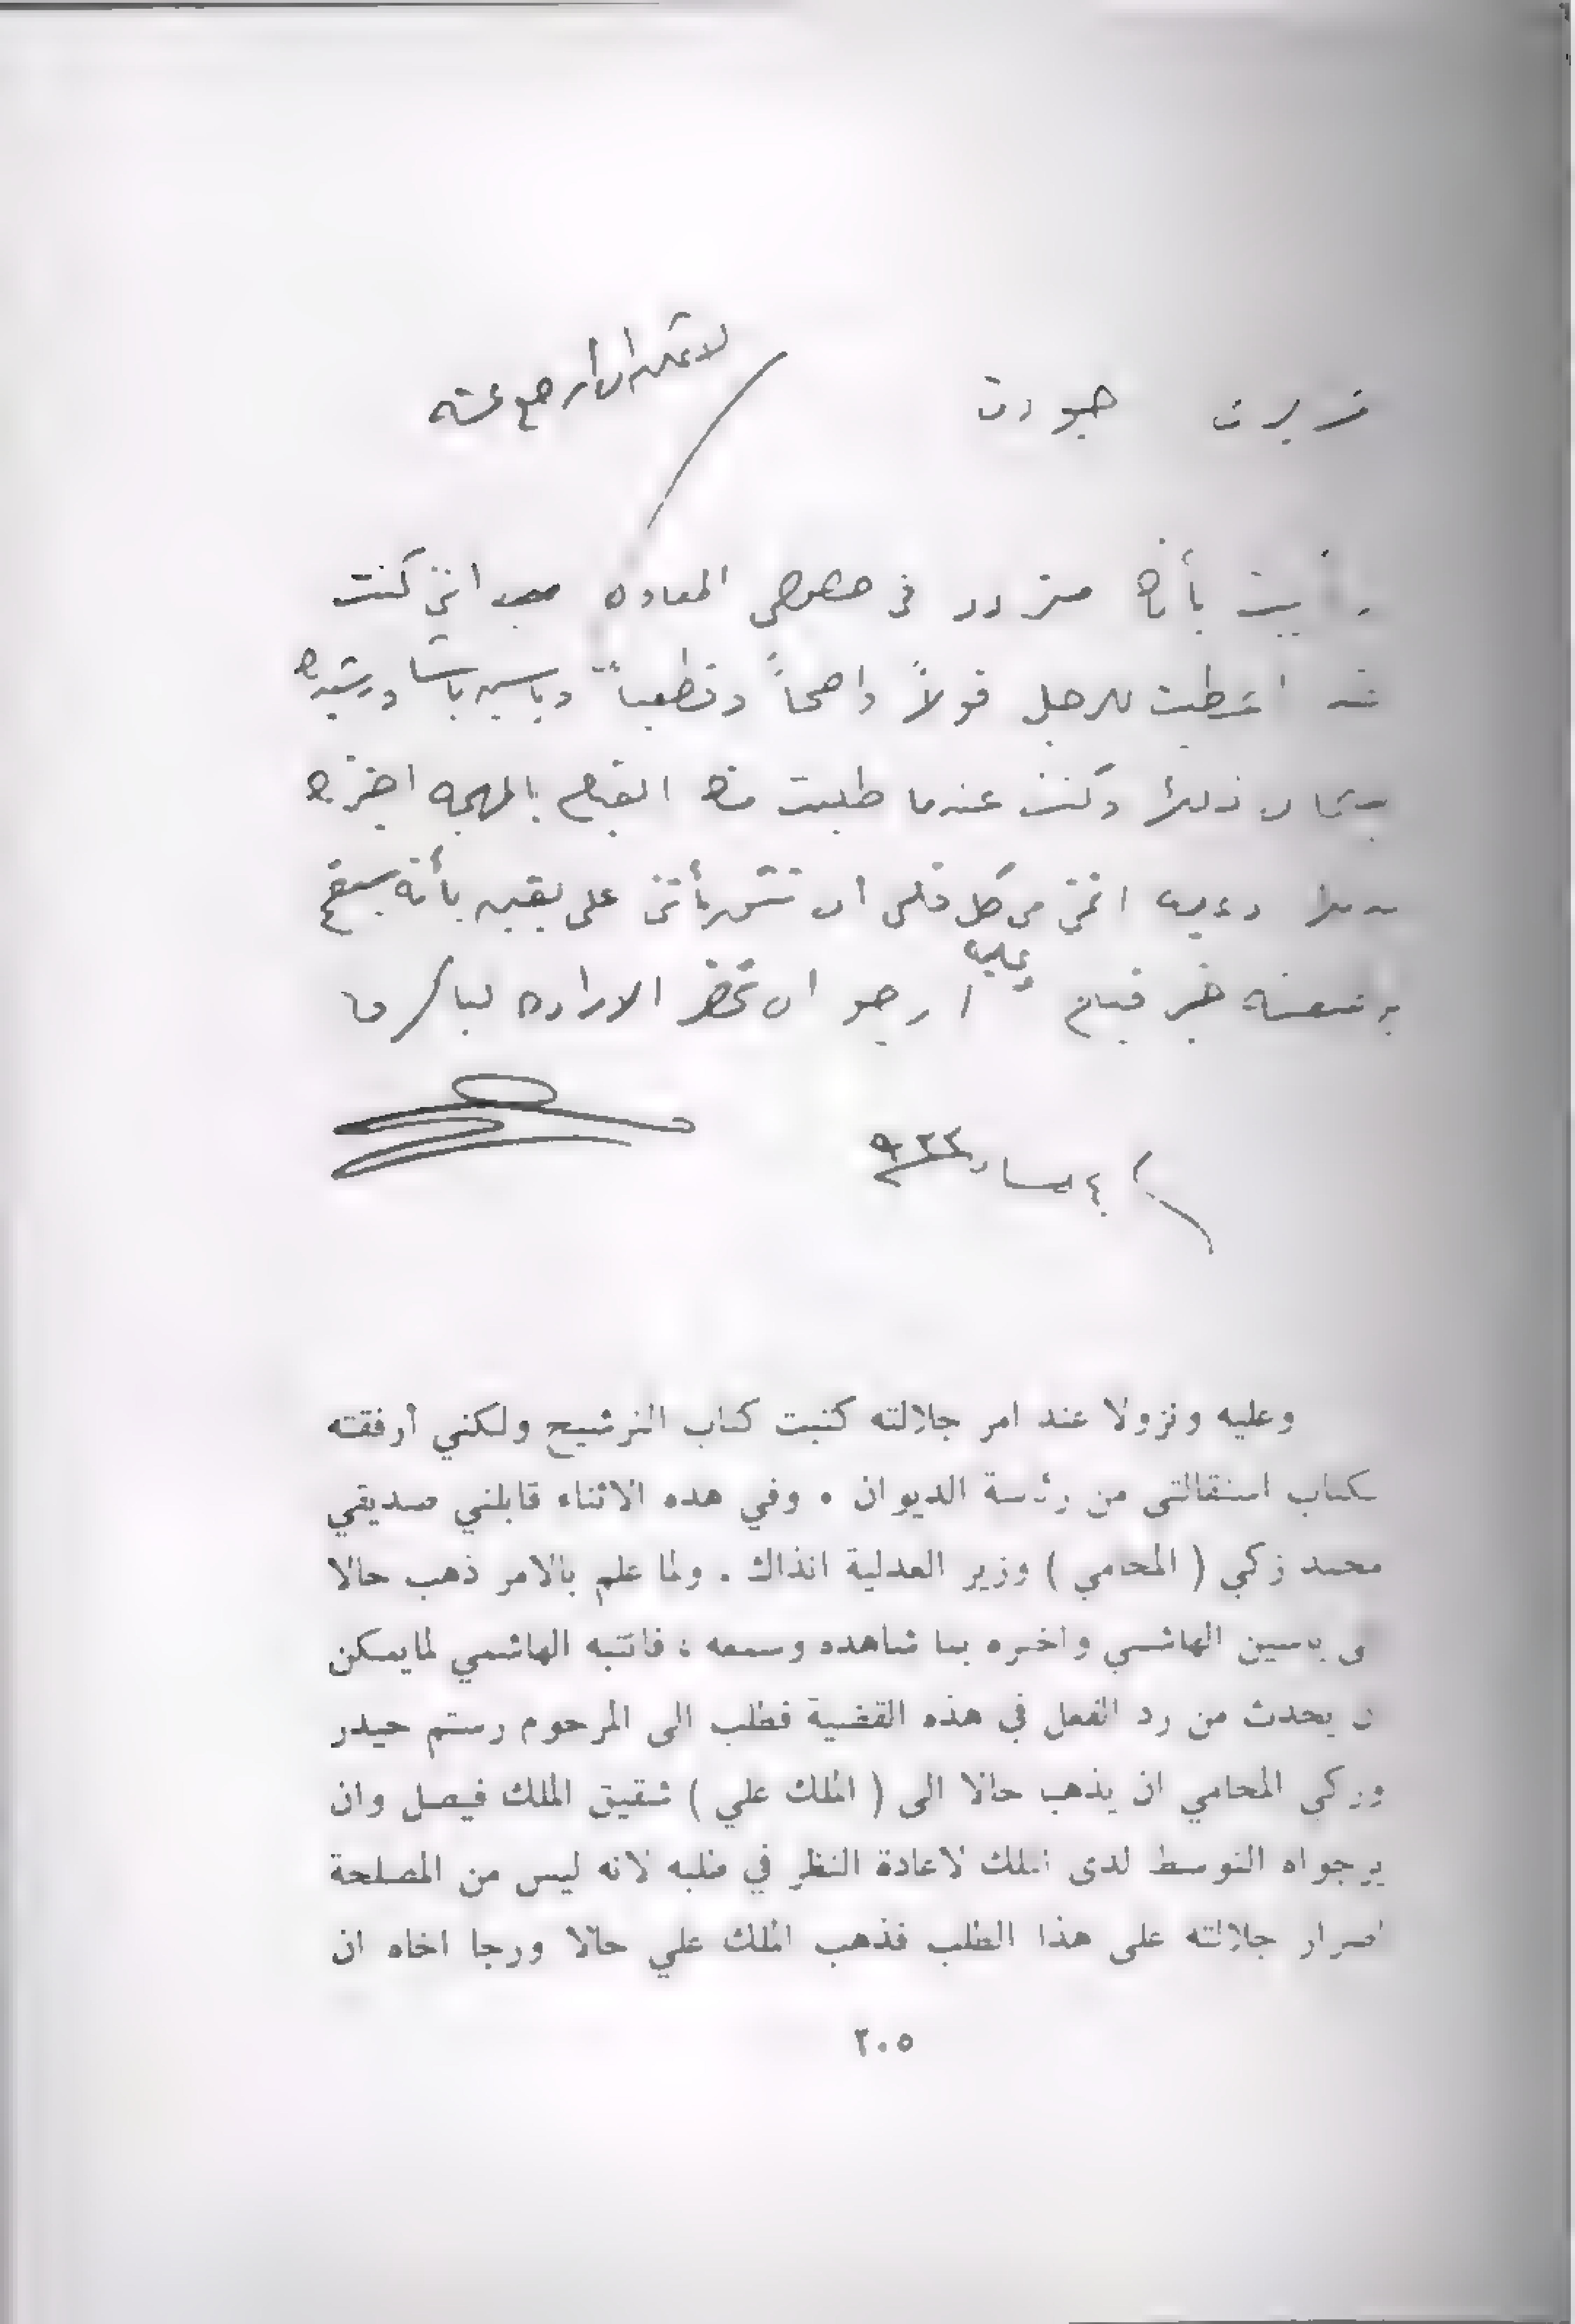 عزيزي جودت
لا يمكن ان أرجع عنه
رأيت بأنك متردد في خصوص المعاون انني كنت
قد اعطيت للرجل قولاً واضحاً وقطعياً وياسين باشا ورشيد
ذلك وكنت عندما طلبت منك القيام بالمهمة
انني من كل قلبي ان بأنني على يقين بأنه سيقع
خير قيام وعليه ارجو ان تحضر الارادة
٤ مساء
وعليه ونزولا عند امر جلالته كتبت كتاب الترشيح ولكني أرفقته
بكتاب استقالتي من رئاسة الديوان . وفي هذه الاثناء قابلني صديقي
محمد زكي ( المحامي ) وزير العدلية انذاك . ولما علم بالامر ذهب حالا
الى ياسين الهاشمي واخبره بما شاهده وسمعه ، فانتبه الهاشمي لمايمكن
ان يحدث من رد الفعل في هذه القضية فطلب الى المرحوم رستم حيدر
وزكي المحامي ان يذهب حالا الى ( الملك علي ) شقيق الملك فيصل وان
يرجواه التوسط لدى الملك لاعادة النظر في طلبه لانه ليس من المصلحة
اصرار جلالته على هذا الطلب فذهب الملك علي حالا ورجا اخاه ان
٢٠٥